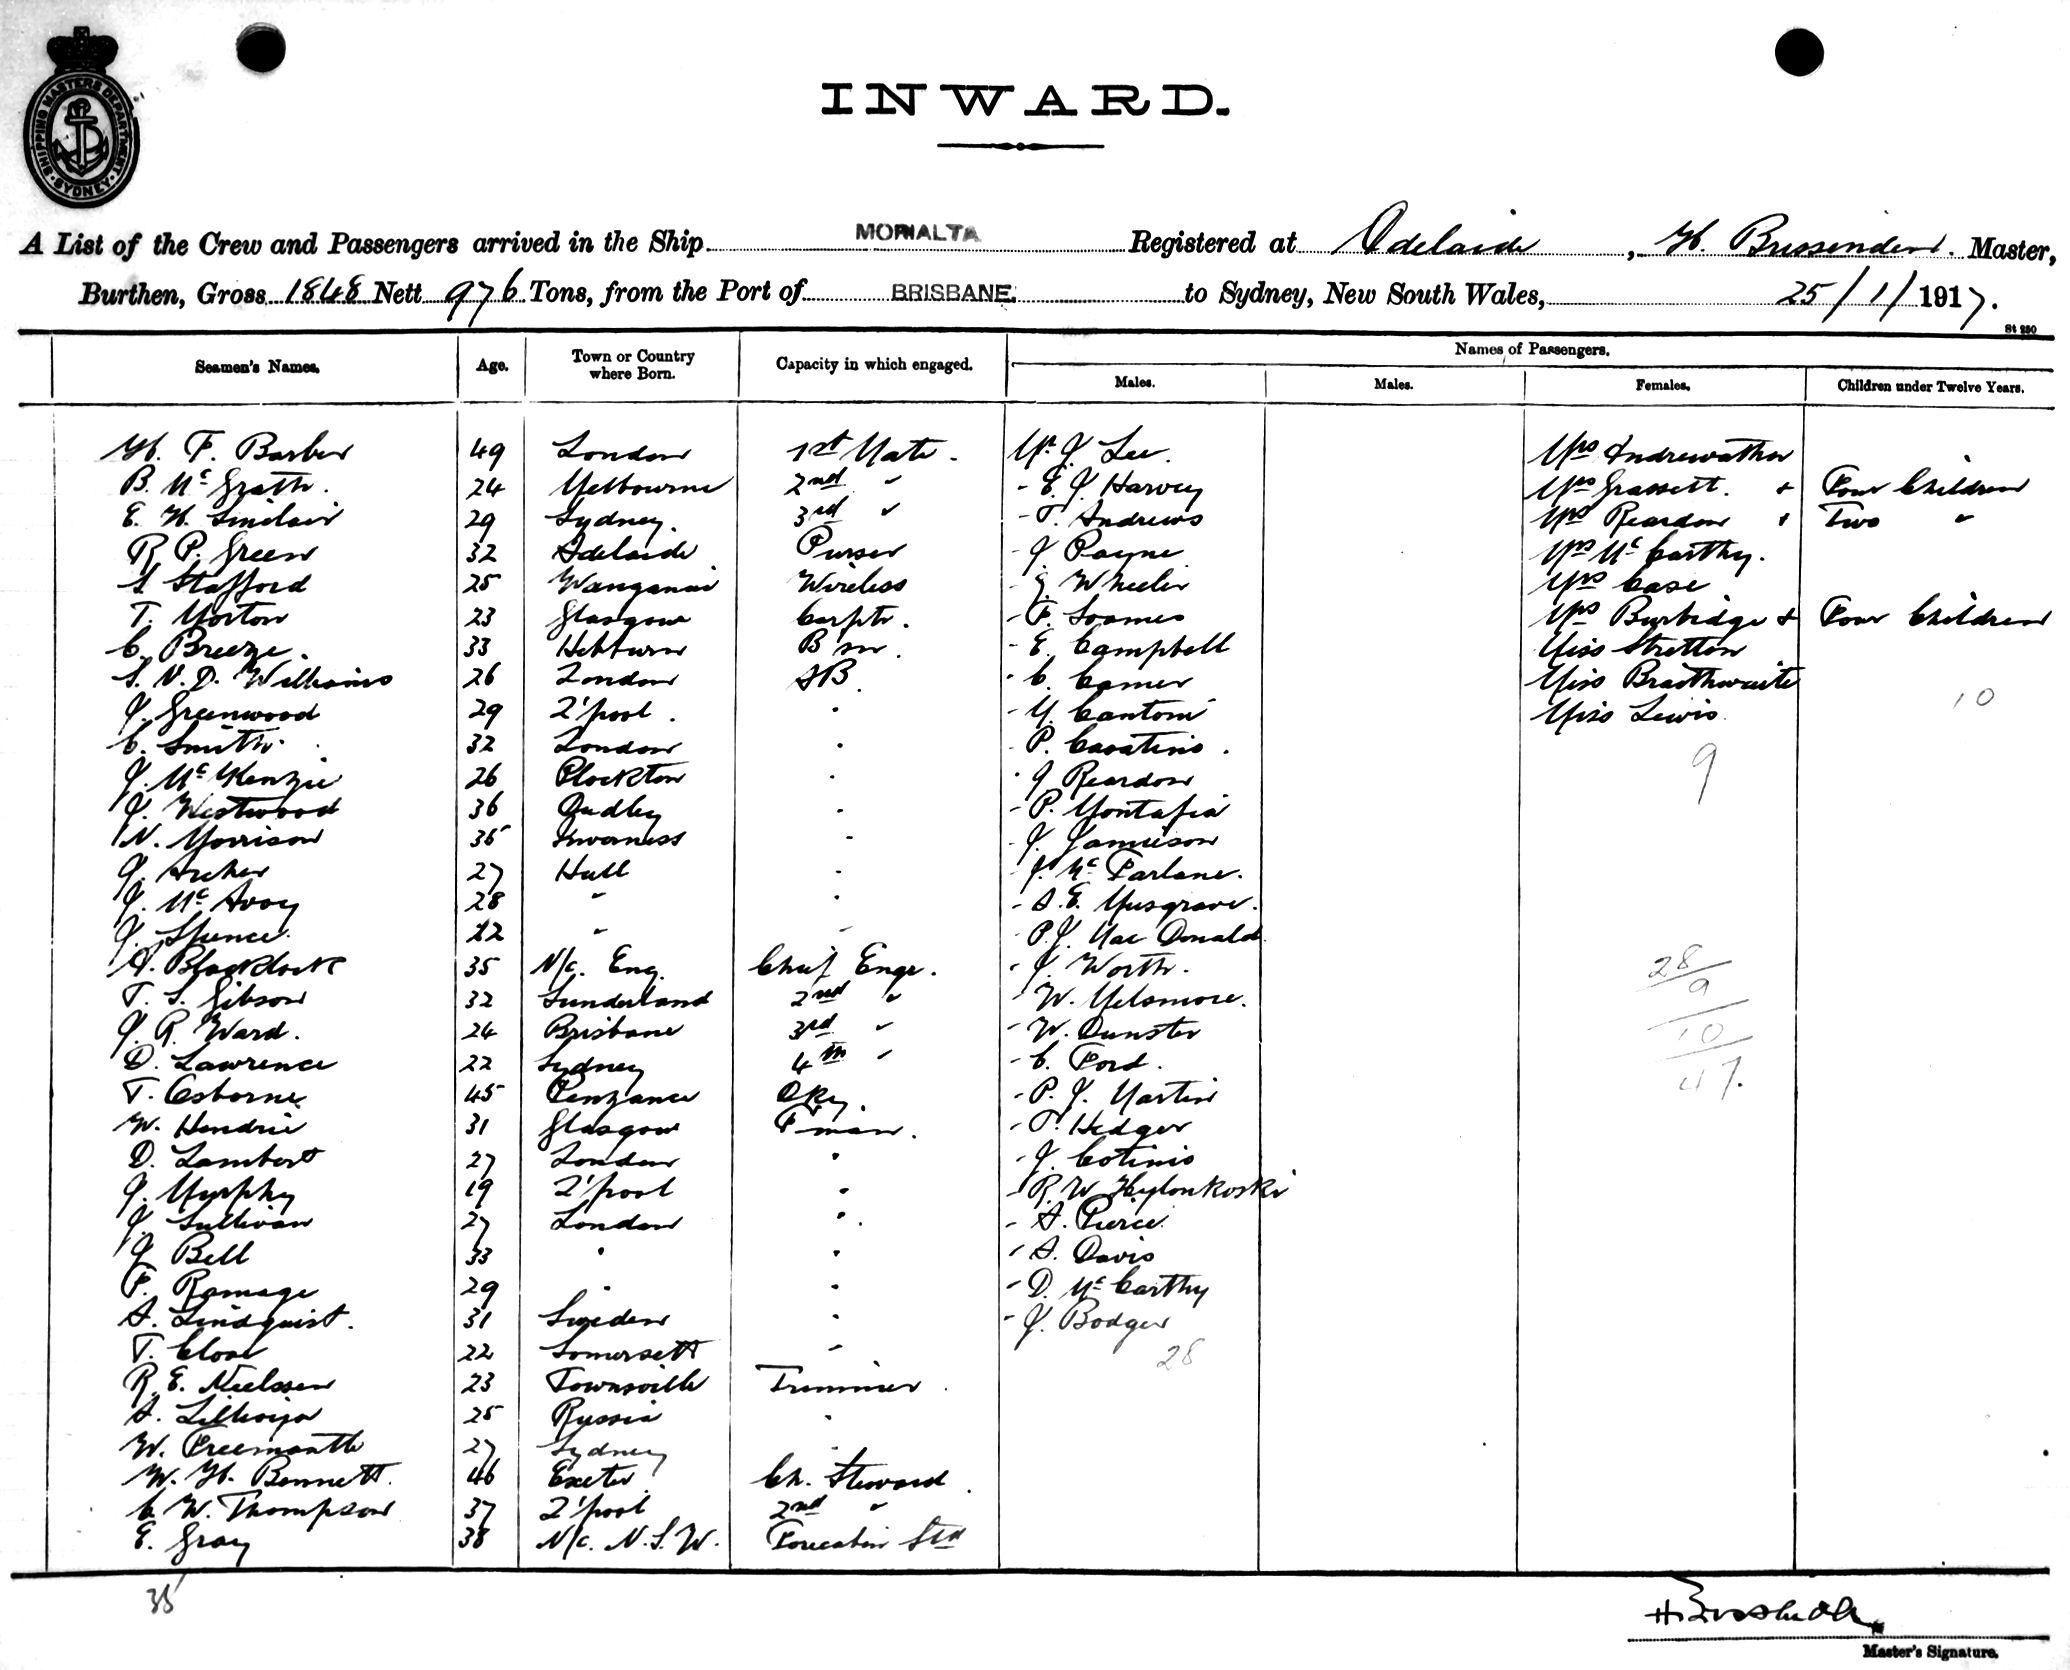 SHIPPING MASTERS DEPARTMENT · SYDNEY ·
INWARD.
A List of the Crew and Passengers arrived in the Ship MORIALTA Registered at Adelaide, H. Brissenden. Master,
Burthen, Gross 1848 Nett 976 Tons, from the Port of BRISBANE. to Sydney, New South Wales, 25/1/1917.
St 250
Seamen's Names. Age. Town or Country where Born. Capacity in which engaged. Names of Passengers.
Males. Males. Females. Children under Twelve Years.
H. F. Barber 49 London 1st Mate. Mr J. Lee. Mrs Andrewatha
B. McGrath. 24 Melbourne 2nd " - E. J. Harvey Mrs Grassett. + Four Children
E. H. Sinclair 29 Sydney. 3rd " - T. Andrews Mrs Reardon + Two "
R P. Green 32 Adelaide Purser - J Payne Mrs McCarthy.
S Stafford 25 Wanganui Wireless - G. Wheeler Mrs Case
T. Morton 23 Glasgow Carptr. - F. Soames Mrs Burbidge + Four Children
C. Breeze. 33 Hebburn B'm. - E. Campbell Miss Stretton
S. V. D. Williams 26 London AB. - C. Comer Miss Braithwaite
J. Greenwood 29 L'pool. " - M. Cantoni Miss Lewis 10
C. Smith. 32 London " - P. Cavatinis.
J. McKenzie 26 Plockton " - J Reardon 9
J. Westwood 36 Dudley " - P. Montafia
N. Morrison 35 Inverness " - J. Jamieson
J. Archer 27 Hull " - J. McFarlane.
J. McAvoy 28 " " - A. E. Musgrave.
J. Spence. 22 " " - P. J. MacDonald
A. Blacklock 35 N/c. Eng. Chief Engr. - J. Worth. 28
T. S. Gibson 32 Sunderland 2nd " - W. Melsmore. 9
J. R. Ward. 24 Brisbane 3rd " - W. Dunster 10
D. Lawrence 22 Sydney 4th " - C. Ford. 47.
T. Osborne 45 Penzance Dky. - P. J. Martin
W. Hendrie 31 Glasgow F'man. - T. Hedger
D. Lambert 27 London " - J. Cotinis
J. Murphy 19 L'pool " - R. W.
J. Sullivan 27 London " - A. Pierce.
J Bell 33 " " - A. Davis
F. Ramage 29 " " - D. McCarthy
A. Lindquist. 31 Sweden " - J. Bodger
T. Cloar 22 Somersett " 28
R. E. Nielssen 23 Townsville Trimmer.
A. 25 Russia "
W. Freemantle 27 Sydney "
W. H. Bennett. 46 Exeter Ch. Steward.
C. W. Thompson 37 L'pool 2nd "
E. Gray 38 N/c. N. S. W. Forecabin Std
35
H. Brissenden
Master's Signature.